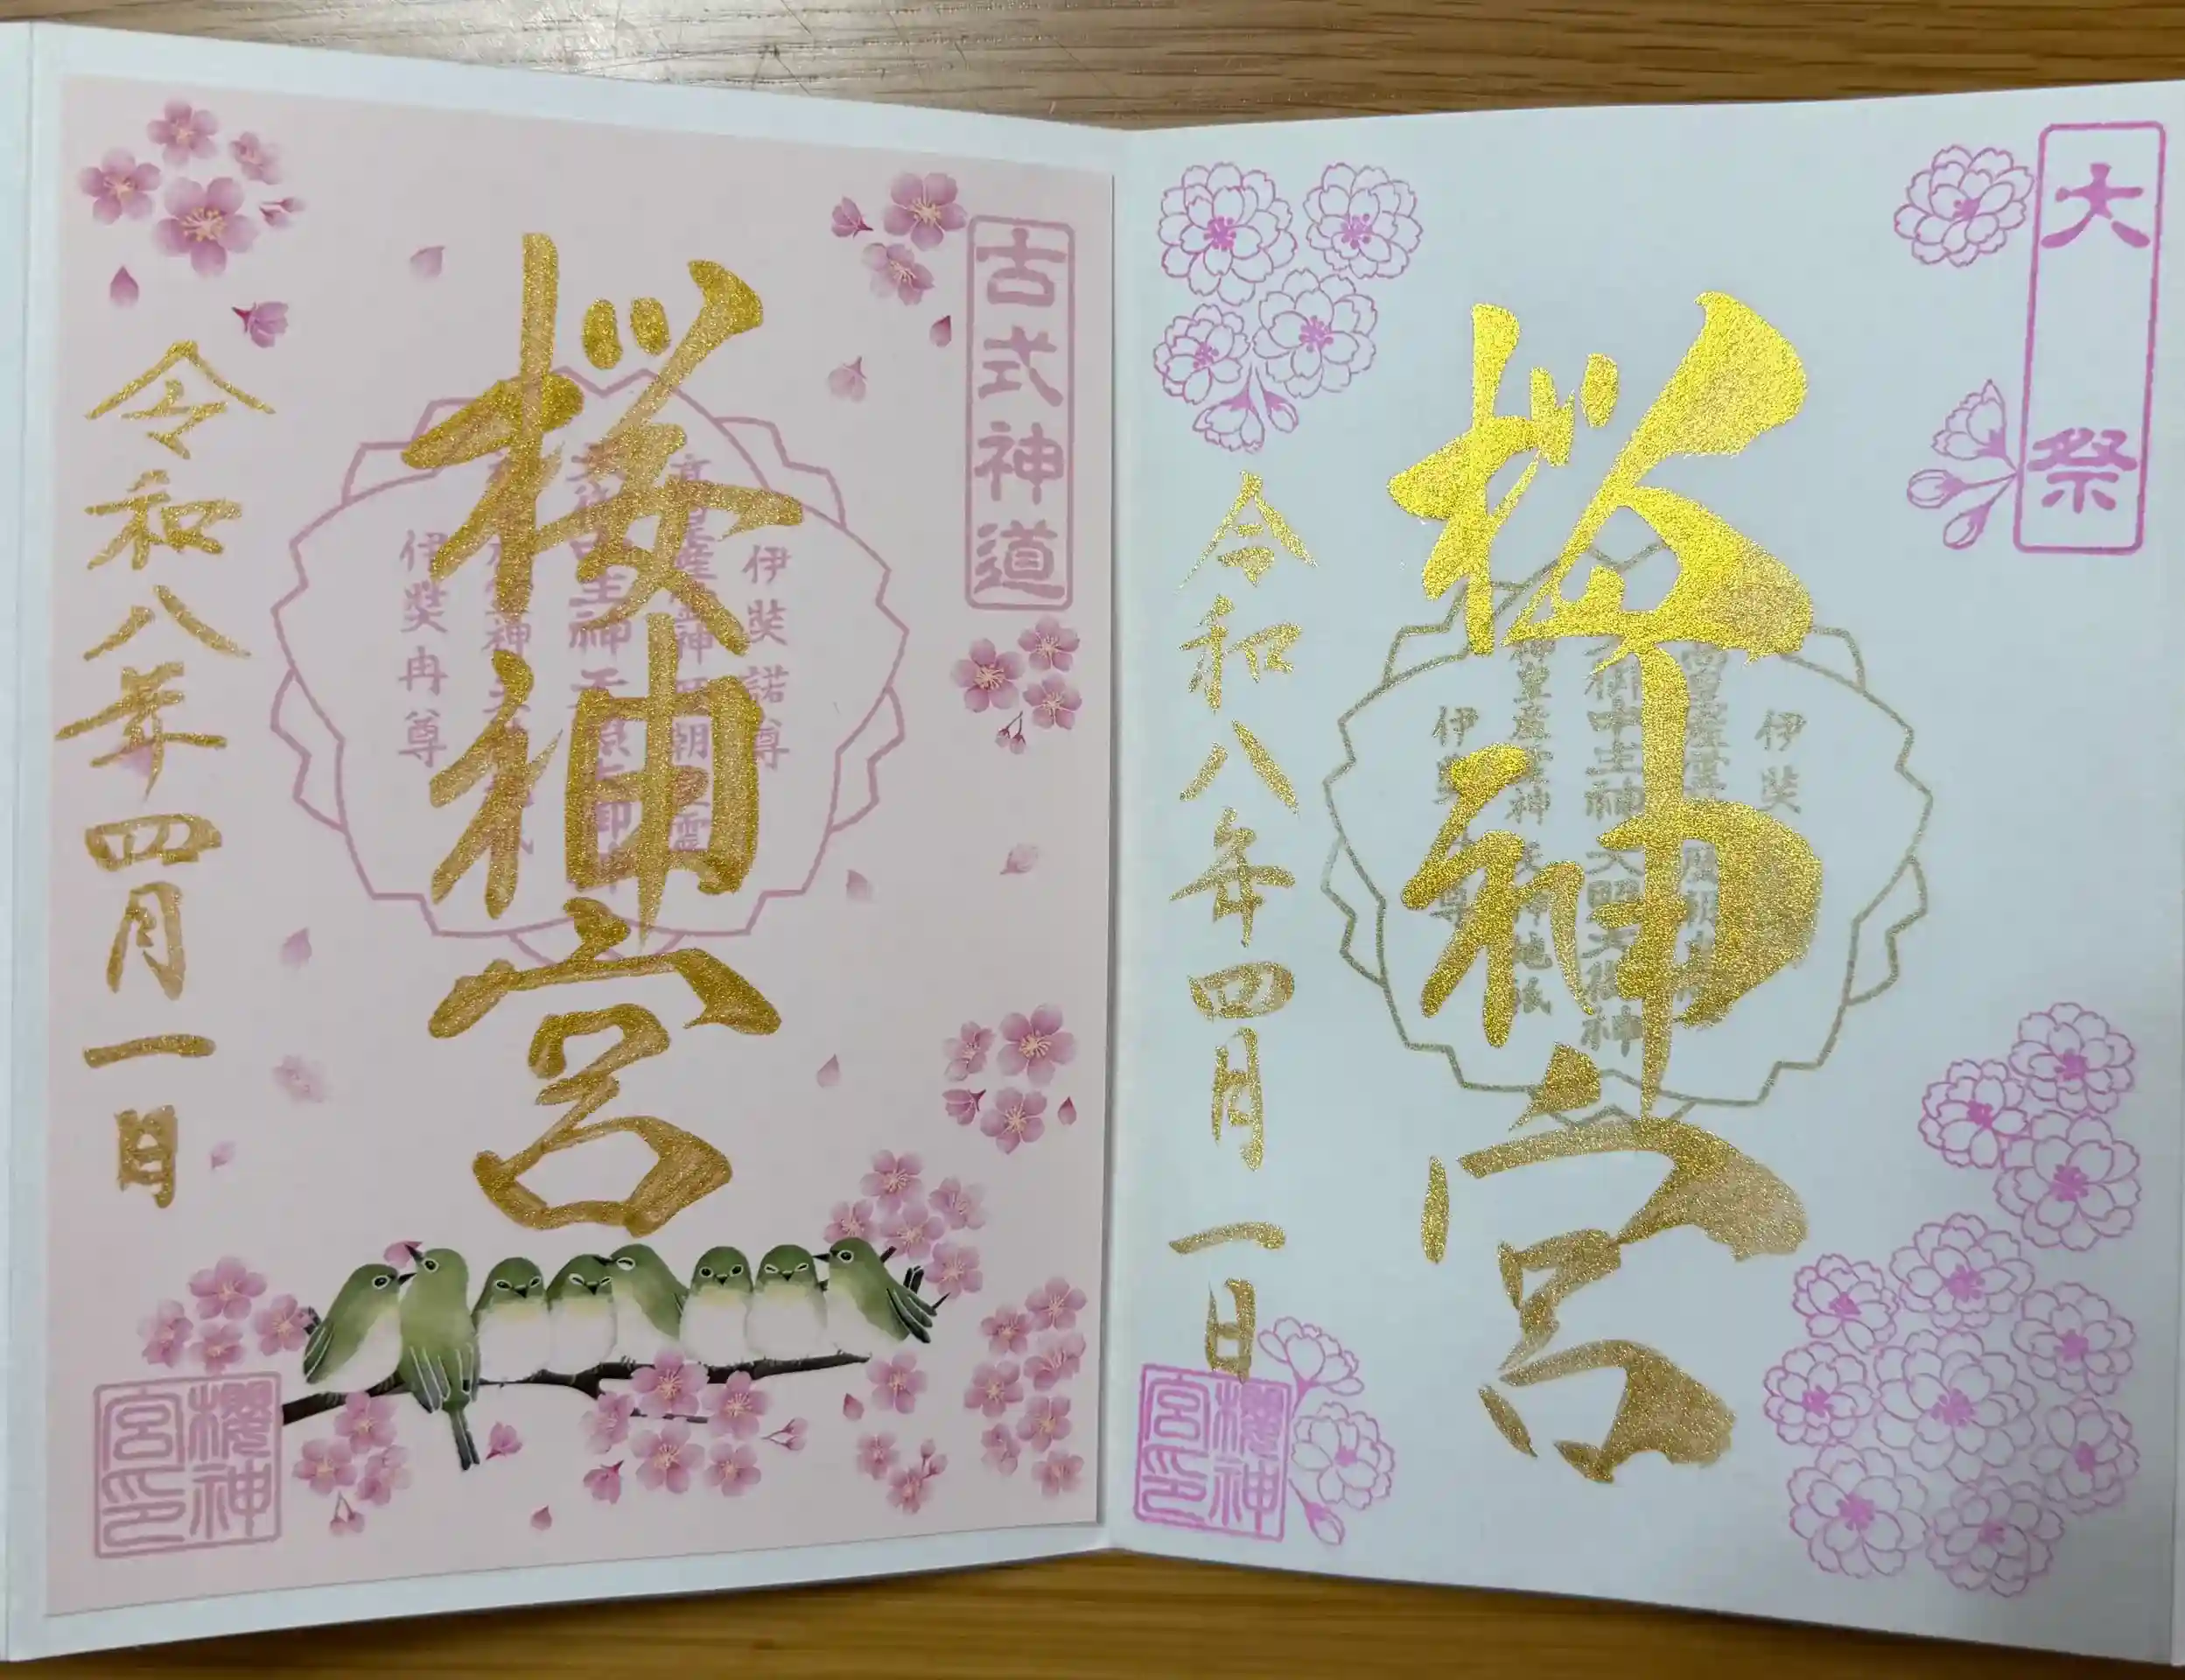 古式神道
桜神宮
伊奘諾尊
伊奘冉尊
令和八年四月一日
櫻神
宮印
大祭
桜神宮
伊奘
令和八年四月一日
櫻神
宮印